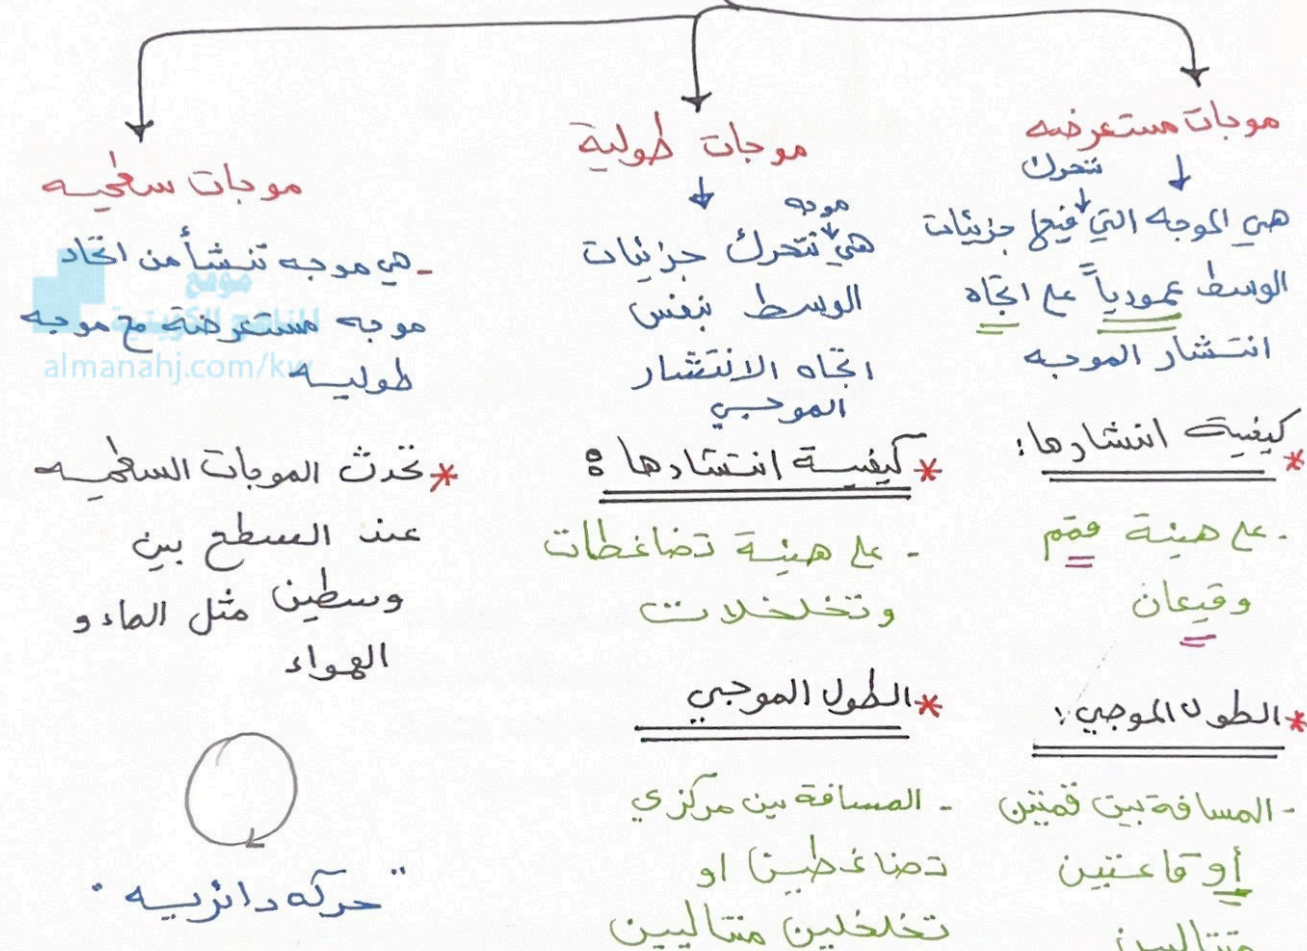 موجات مستعرضه
تتحرك
هي الموجه التي فيها جزيئات
الوسط عمودياً على اتجاه
انتشار الموجه
* كيفية انتشارها:
- على هيئة قمم
وقيعان
* الطول الموجي:
- المسافة بين قمتين
أو قاعتين
متتاليين
موجات طولية
موجه
هي تتحرك جزيئات
الوسط بنفس
اتجاه الانتشار
الموجي
* كيفية انتشارها:
- على هيئة تضاغطات
وتخلخلات
* الطول الموجي
- المسافة بين مركزي
تضاغطين او
تخلخلين متتاليين
موجات سطحيه
- هي موجه تنشأ من اتحاد
موجه مستعرضة مع موجه
طوليه
* تحدث الموجات السطحيه
عند السطح بين
وسطين مثل الماء و
الهواء
"حركه دائريه"
موقع
المناهج الكويتية
almanahj.com/kw